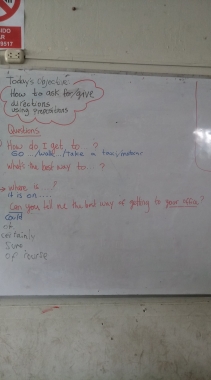 IDO
AR
9517
Today's objective
How to ask for/give
directions
using prepositions
Questions
How do I get to ... ?
so .../walk.../take a
what's the best way to... ?
→ where is ... ?
it is on ...
Can you tell me the best way of getting to your
could
of
certainly
Sure
Of course